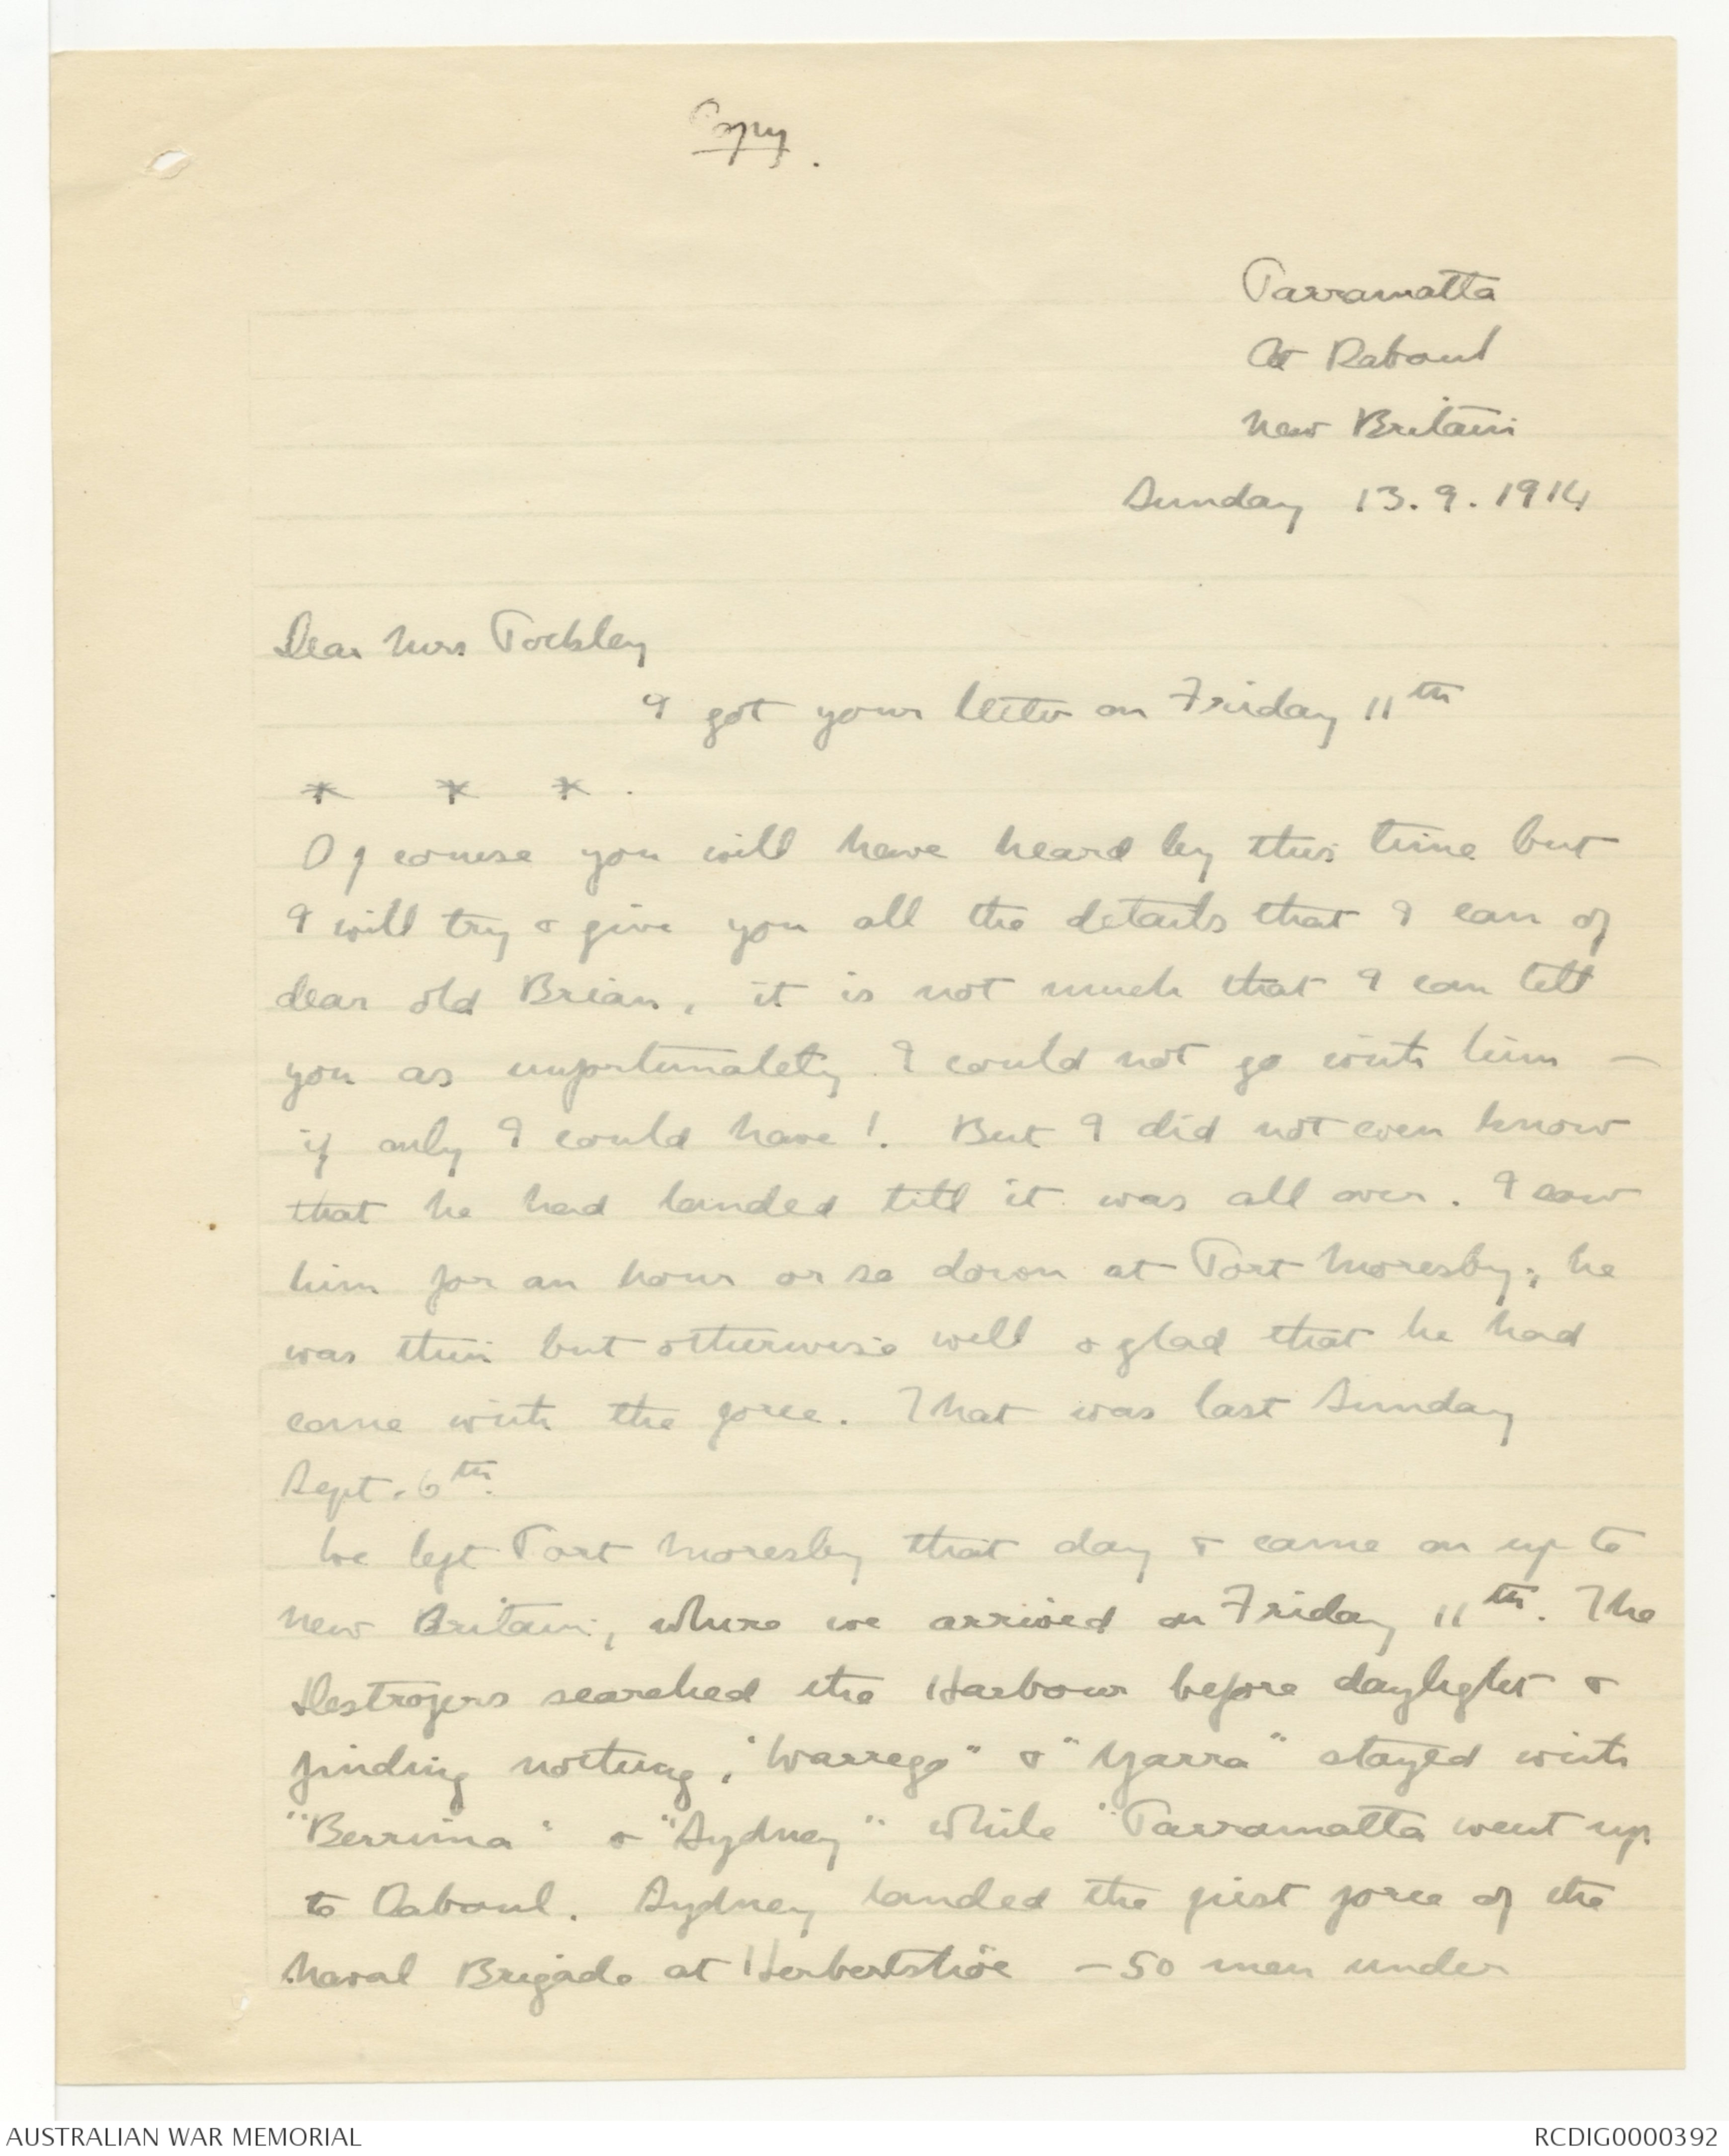 Copy.
Parramatta
At Rabaul
New Britain
Sunday 13.9.1914
Dear Mrs Pockley
I got your letter on Friday 11th
* * *.
Of course you will have heard by this time but
I will try & give you all the details that I can of
dear old Brian, it is not much that I can tell
you as unfortunately I could not go with him —
if only I could have! But I did not even know
that he had landed till it was all over. I saw
him for an hour or so down at Port Moresby; he
was thin but otherwise well & glad that he had
come with the force. That was last Sunday
Sept. 6th.
We left Port Moresby that day & came on up to
New Britain, where we arrived on Friday 11th. The
Destroyers searched the Harbour before daylight &
finding nothing, "Warrego" & "Yarra" stayed with
"Berrima" & "Sydney" while "Parramatta went up
to Rabaul. Sydney landed the first force of the
Naval Brigade at Herbertshöe – 50 men under
AUSTRALIAN WAR MEMORIAL
RCDIG0000392